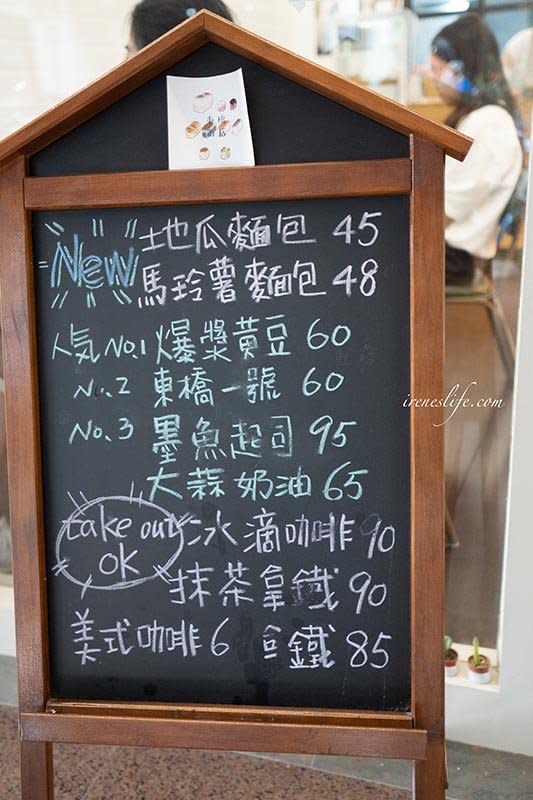 New 地瓜麵包 45
馬玲薯麵包 48
人気 No.1 爆漿黃豆 60
No.2 東橋一號 60
No.3 墨魚起司 95
大蒜奶油 65
take out OK 冰滴咖啡 90
抹茶拿鐵 90
美式咖啡 6 拿鐵 85
ireneslife.com